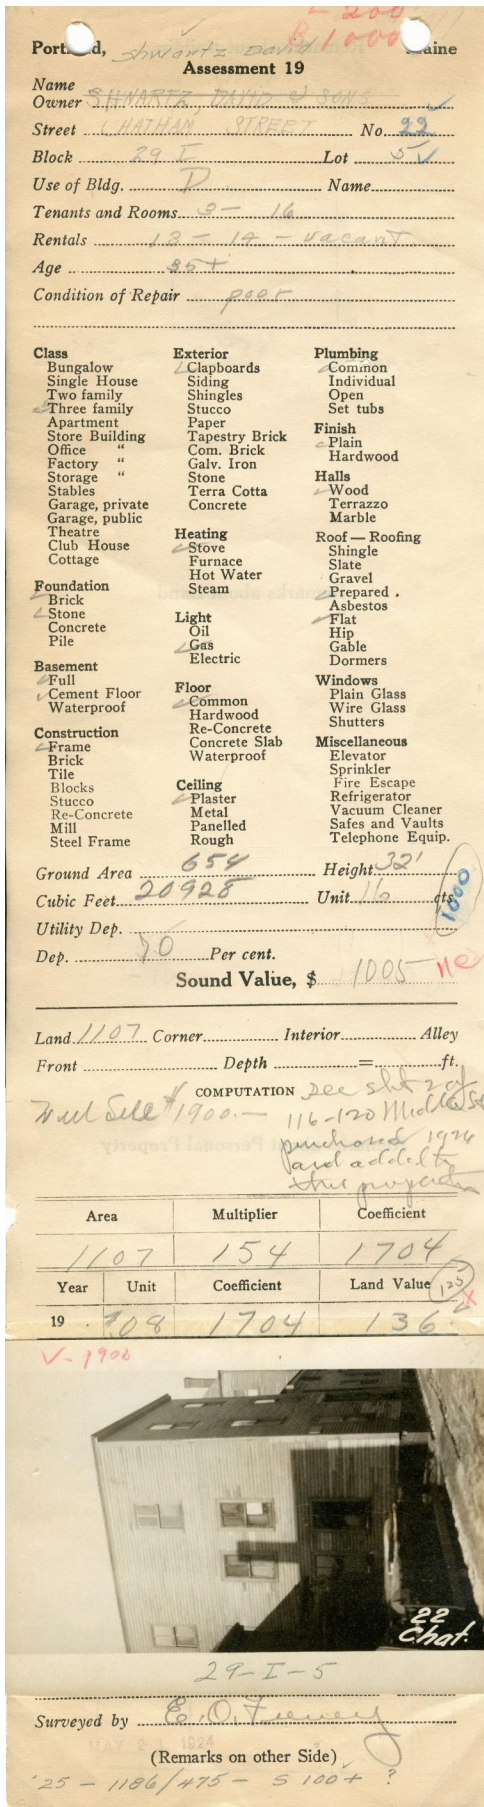 L 200
B 1000
Portland, Shwartz David Maine
Assessment 19
Name
Owner SHWARTZ, DAVID & SONS
Street CHATHAM STREET No. 22
Block 29 I Lot 5
Use of Bldg. D Name
Tenants and Rooms 3 - 16
Rentals 13 - 14 - vacant
Age 35+
Condition of Repair poor
Class
Bungalow
Single House
Two family
Three family
Apartment
Store Building
Office "
Factory "
Storage "
Stables
Garage, private
Garage, public
Theatre
Club House
Cottage
Foundation
Brick
Stone
Concrete
Pile
Basement
Full
Cement Floor
Waterproof
Construction
Frame
Brick
Tile
Blocks
Stucco
Re-Concrete
Mill
Steel Frame
Exterior
Clapboards
Siding
Shingles
Stucco
Paper
Tapestry Brick
Com. Brick
Galv. Iron
Stone
Terra Cotta
Concrete
Heating
Stove
Furnace
Hot Water
Steam
Light
Oil
Gas
Electric
Floor
Common
Hardwood
Re-Concrete
Concrete Slab
Waterproof
Ceiling
Plaster
Metal
Panelled
Rough
Plumbing
Common
Individual
Open
Set tubs
Finish
Plain
Hardwood
Halls
Wood
Terrazzo
Marble
Roof — Roofing
Shingle
Slate
Gravel
Prepared .
Asbestos
Flat
Hip
Gable
Dormers
Windows
Plain Glass
Wire Glass
Shutters
Miscellaneous
Elevator
Sprinkler
Fire Escape
Refrigerator
Vacuum Cleaner
Safes and Vaults
Telephone Equip.
Ground Area 654 Height 32'
Cubic Feet 20928 Unit 16 cts.
1000
Utility Dep.
Dep. 70 Per cent.
Sound Value, $ 1005
Land 1107 Corner Interior Alley
Front Depth = ft.
COMPUTATION See sht 2 of
Will Sell $1900.— 116-120 Middle St
purchased 1924
and added to
this property
Area Multiplier Coefficient
1107 154 1704
Year Unit Coefficient Land Value 125
19 .08 1704 136
V-1900
22
Chat.
29-I-5
Surveyed by E. O. Feeney
MAY 1924
(Remarks on other Side)
'25 - 1186/475 - S 100+ ?